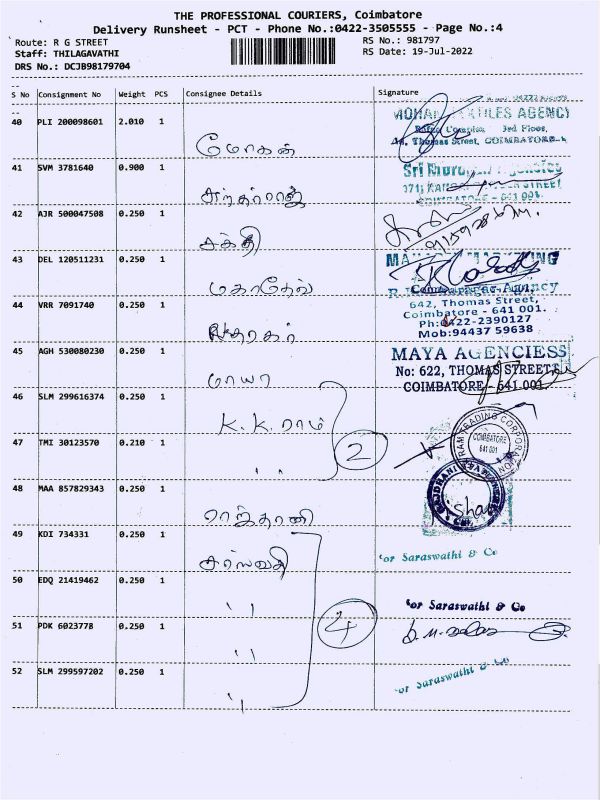 THE PROFESSIONAL COURIERS, Coimbatore
Delivery Runsheet - PCT - Phone No.:0422-3505555 - Page No.:4
Route: R G STREET
RS No.: 981797
Staff: THILAGAVATHI
RS Date: 19-Jul-2022
DRS No.: DCJB98179704
S No Consignment No Weight PCS Consignee Details Signature
40 PLI 200098601 2.010 1
TILES AGENCY
3rd Floor,
Thomas Street, COIMBATORE
மோகன்
41 SVM 3781640 0.900 1
Sri
STREET
42 AJR 500047508 0.250 1
சக்தி
43 DEL 120511231 0.250 1
Agency
642, Thomas Street,
Coimbatore - 641 001.
மகாதேவ்
44 VRR 7091740 0.250 1
Ph:0422-2390127
Mob:94437 59638
45 AGH 530080230 0.250 1
MAYA AGENCIESS
No: 622, THOMAS STREET,
COIMBATORE - 641 001
மாயா
46 SLM 299616374 0.250 1
K.K. ராம்
RAM TRADING CORPORATION
COIMBATORE
641 001
2
47 TMI 30123570 0.210 1
,,
48 MAA 857829343 0.250 1
RAJDHANI
ராஜ்தானி
49 KDI 734331 0.250 1
சரஸ்வதி
For Saraswathi & Co
50 EDQ 21419462 0.250 1
,,
For Saraswathi & Co
4
51 PDK 6023778 0.250 1
,,
52 SLM 299597202 0.250 1
For Saraswathi & Co
,,